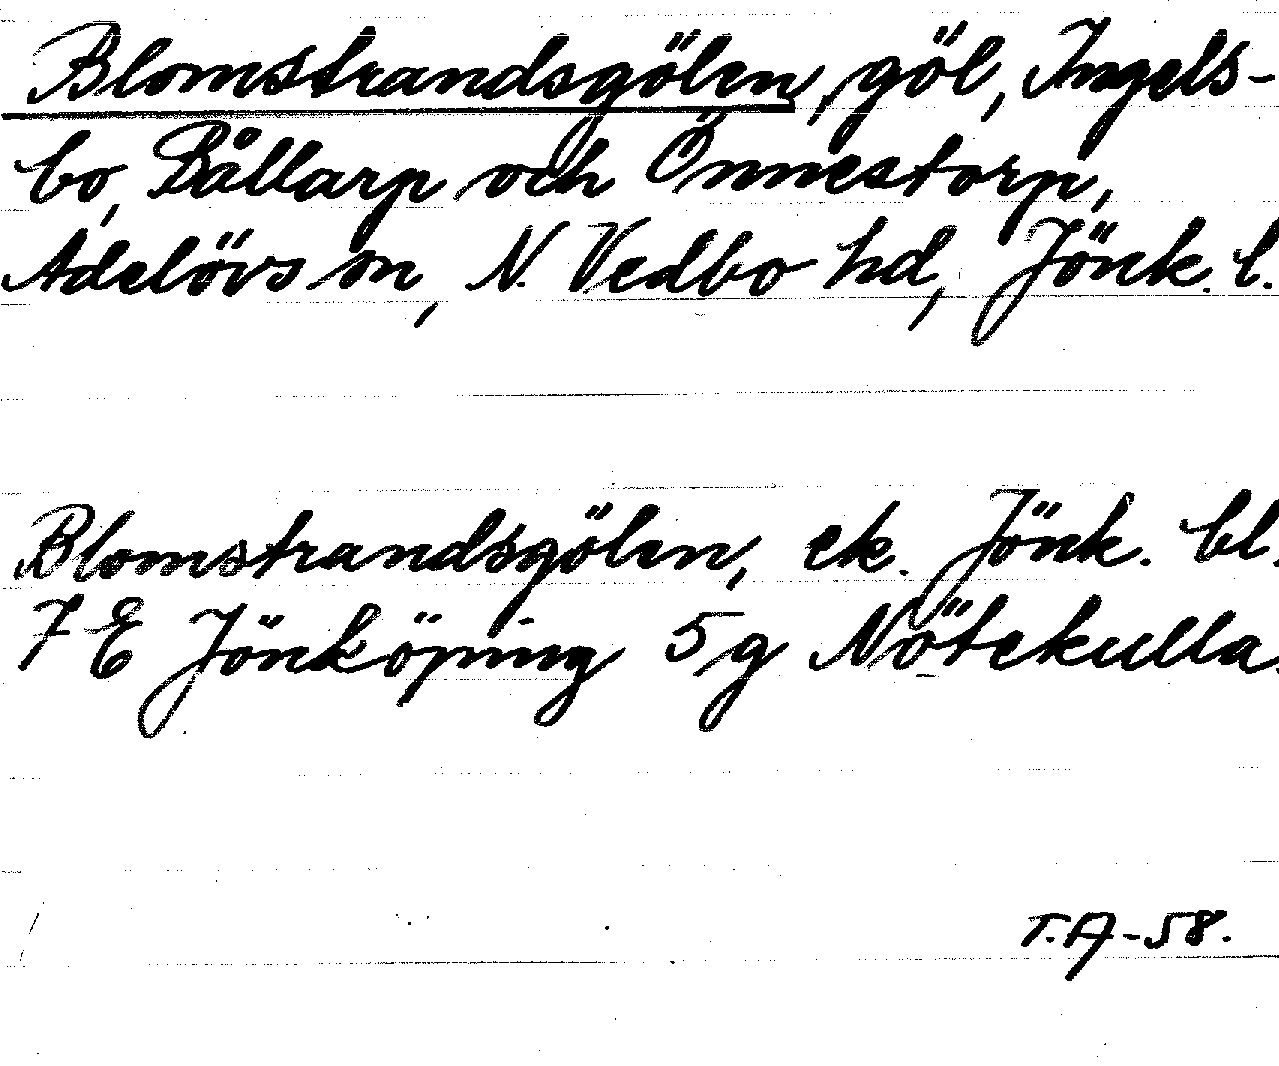 Blomstrandsgölen, göl, Ingels-
bo, Bållarp och Önnestorp,
Adelövs sn, N. Vedbo hd, Jönk. l.
Blomstrandsgölen, ek. Jönk. bl.
7 E Jönköping 5g Nötekulla.
T.A-58.